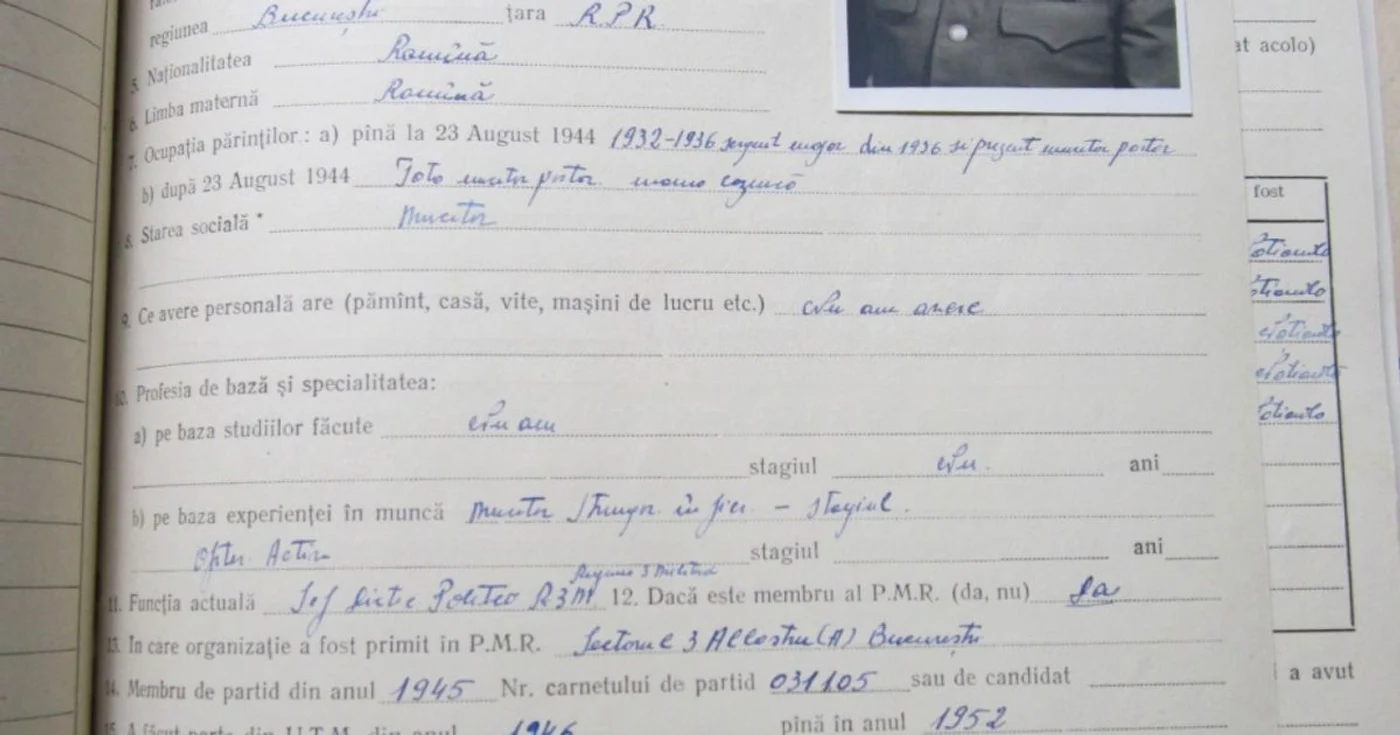 regiunea București țara R.P.R.
at acolo)
5. Naționalitatea Romînă
6. Limba maternă Romînă
7. Ocupația părinților: a) pînă la 23 August 1944 1932-1936 sergent major din 1936 si prezent muncitor
b) după 23 August 1944 muncitor
fost
8. Starea socială * Muncitor
9. Ce avere personală are (pămînt, casă, vite, mașini de lucru etc.) Nu am avere
10. Profesia de bază și specialitatea:
a) pe baza studiilor făcute Nu am
stagiul Nu. ani
b) pe baza experienței în muncă Muncitor Strungar în fier - stagiul.
Ofițer Activ stagiul ani
Regiunea 3 Militară
11. Funcția actuală Șef Politic R3M 12. Dacă este membru al P.M.R. (da, nu) Da
13. In care organizație a fost primit în P.M.R. Sectorul 3 Albastru (A) București
14. Membru de partid din anul 1945 Nr. carnetului de partid 031105 sau de candidat
i a avut
15. A făcut parte din U.T.M. din anul 1946 pînă în anul 1952